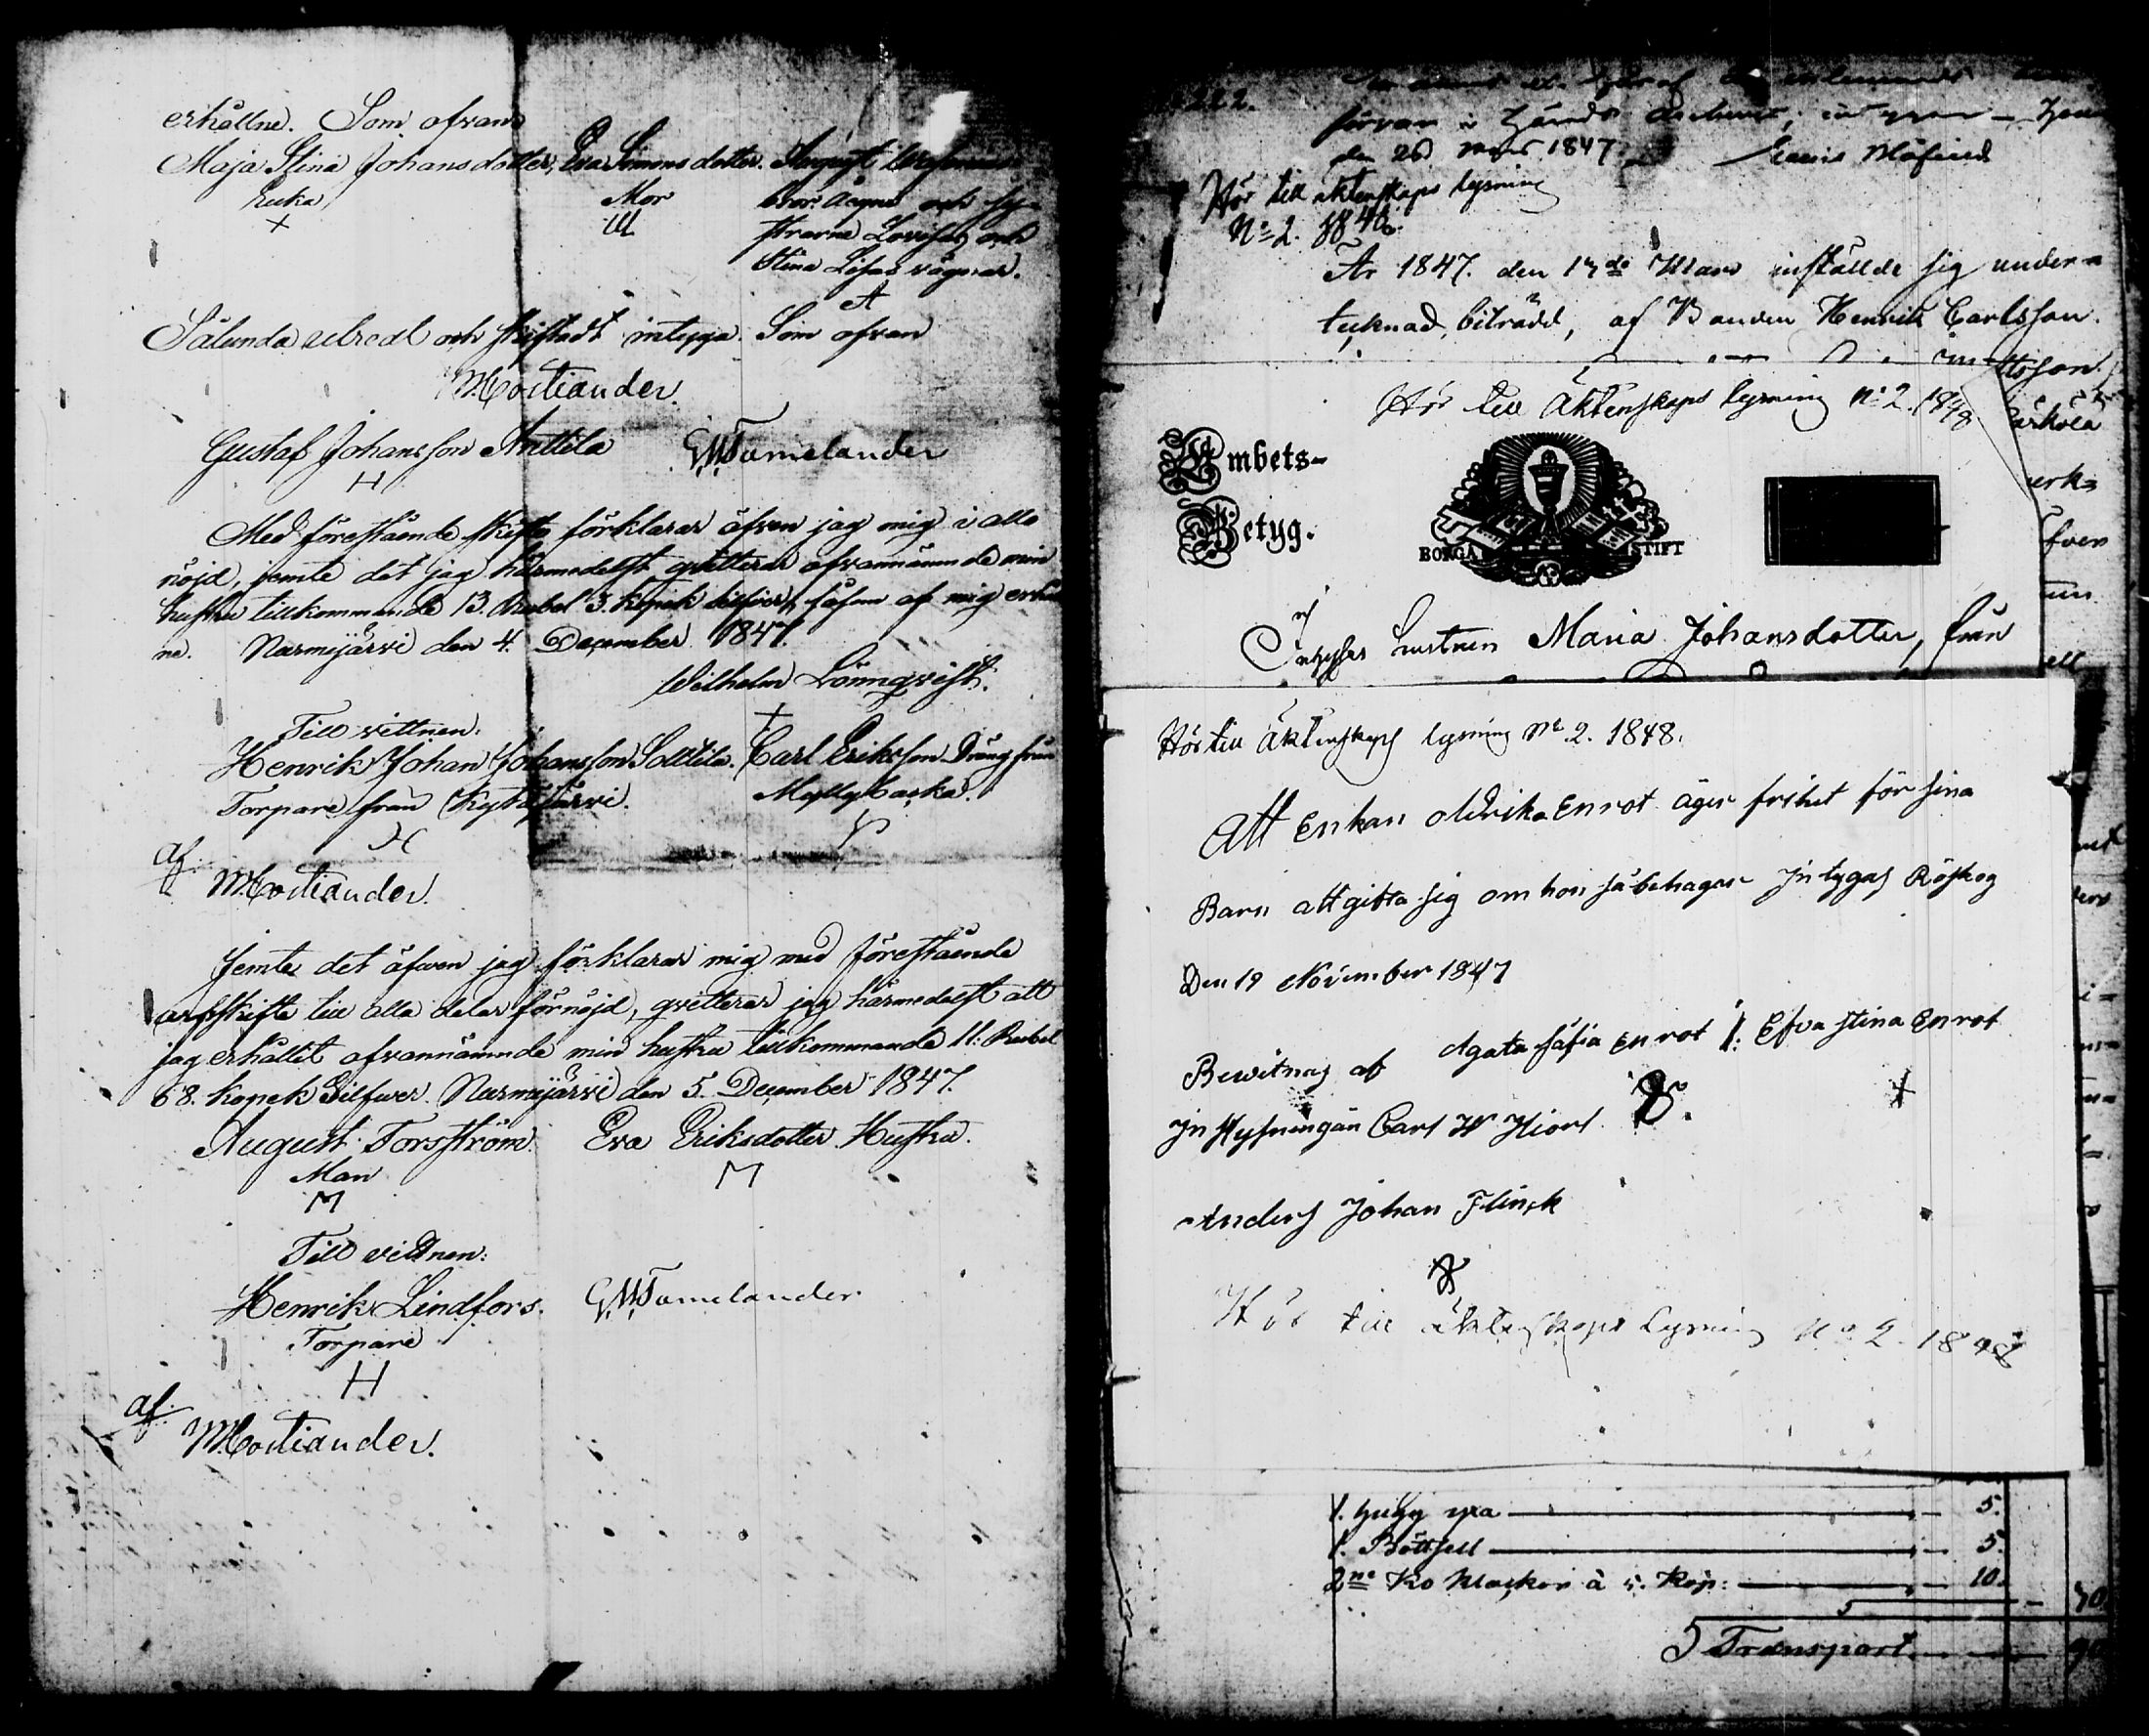 erhållne. Som ofvan
Maja Stina Johansdotter, Eva Simonsdotter. August
Enka Mor bror och sy-
strarne Lovisas och
Stina Lisas vägnar.
Sålunda utredt och skiftadt intyga. Som ofvan
Gustaf Johansson Anttila GWTamelander
Med förestående skifte förklarar äfven jag mig i allo
nöjd, jemte det jag härmedelst qvitterar ofvannämnde min
hustru tillkommande 13. Rubel 3. Kopek silfver, såsom af mig erhåll
ne. Nurmijärvi den 4. December 1847.
Wilhelm Lönnqvist.
Till vittnen.
Henrik Johan Johansson Solttila. Carl Eriksson Dräng från
Torpare från Kytäjärvi. Myllybacka.
af.
Jemte det äfven jag förklarar mig med förestående
arfskifte till alla delar förnöjd, qvitterar jag härmedelst att
jag erhållit ofvannämnde min hustru tillkommande 11. Rubel
68. kopek Silfver. Nurmijärvi den 5. December 1847.
August Forsström. Eva Eriksdotter Hustru.
Man
M M
Till vittnen:
Henrik Lindfors. GWTamelander
Torpare
H
af.
222.
den 26 1847.
Hör till äktenskaps lysning
No 2. 1848.
År 1847. den 17de Mars instälde sig under-
tecknad, biträdd, af Bonden Henrik Carlsson.
Hör till Äktenskaps lysning No 2. 1848.
Embets-
Betyg.
BORGÅ STIFT
Intygas Maria Johansdotter, från
Hör till Äktenskaps lysning No 2. 1848.
Att Enkan Ulrika Enrot äger frihet för sina
Barn att gifta sig om hon så behagar Intygas Röskog
Den 19 November 1847
Bewitnas af Agata Safia Enrot /: Efva Stina Enrot
Carl W Hiort
Anders Johan Flinck
Hör till äktenskaps Lysning No 2. 1848
5.
1. Båttsell 5.
2ne Ko klockor à 5. Kop: 10.
Transport